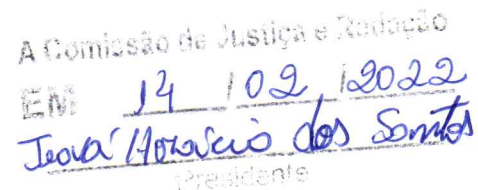 A Comissão de Justiça e Redação
EM 14 / 02 / 2022
Jeová Horácio dos Santos
Presidente